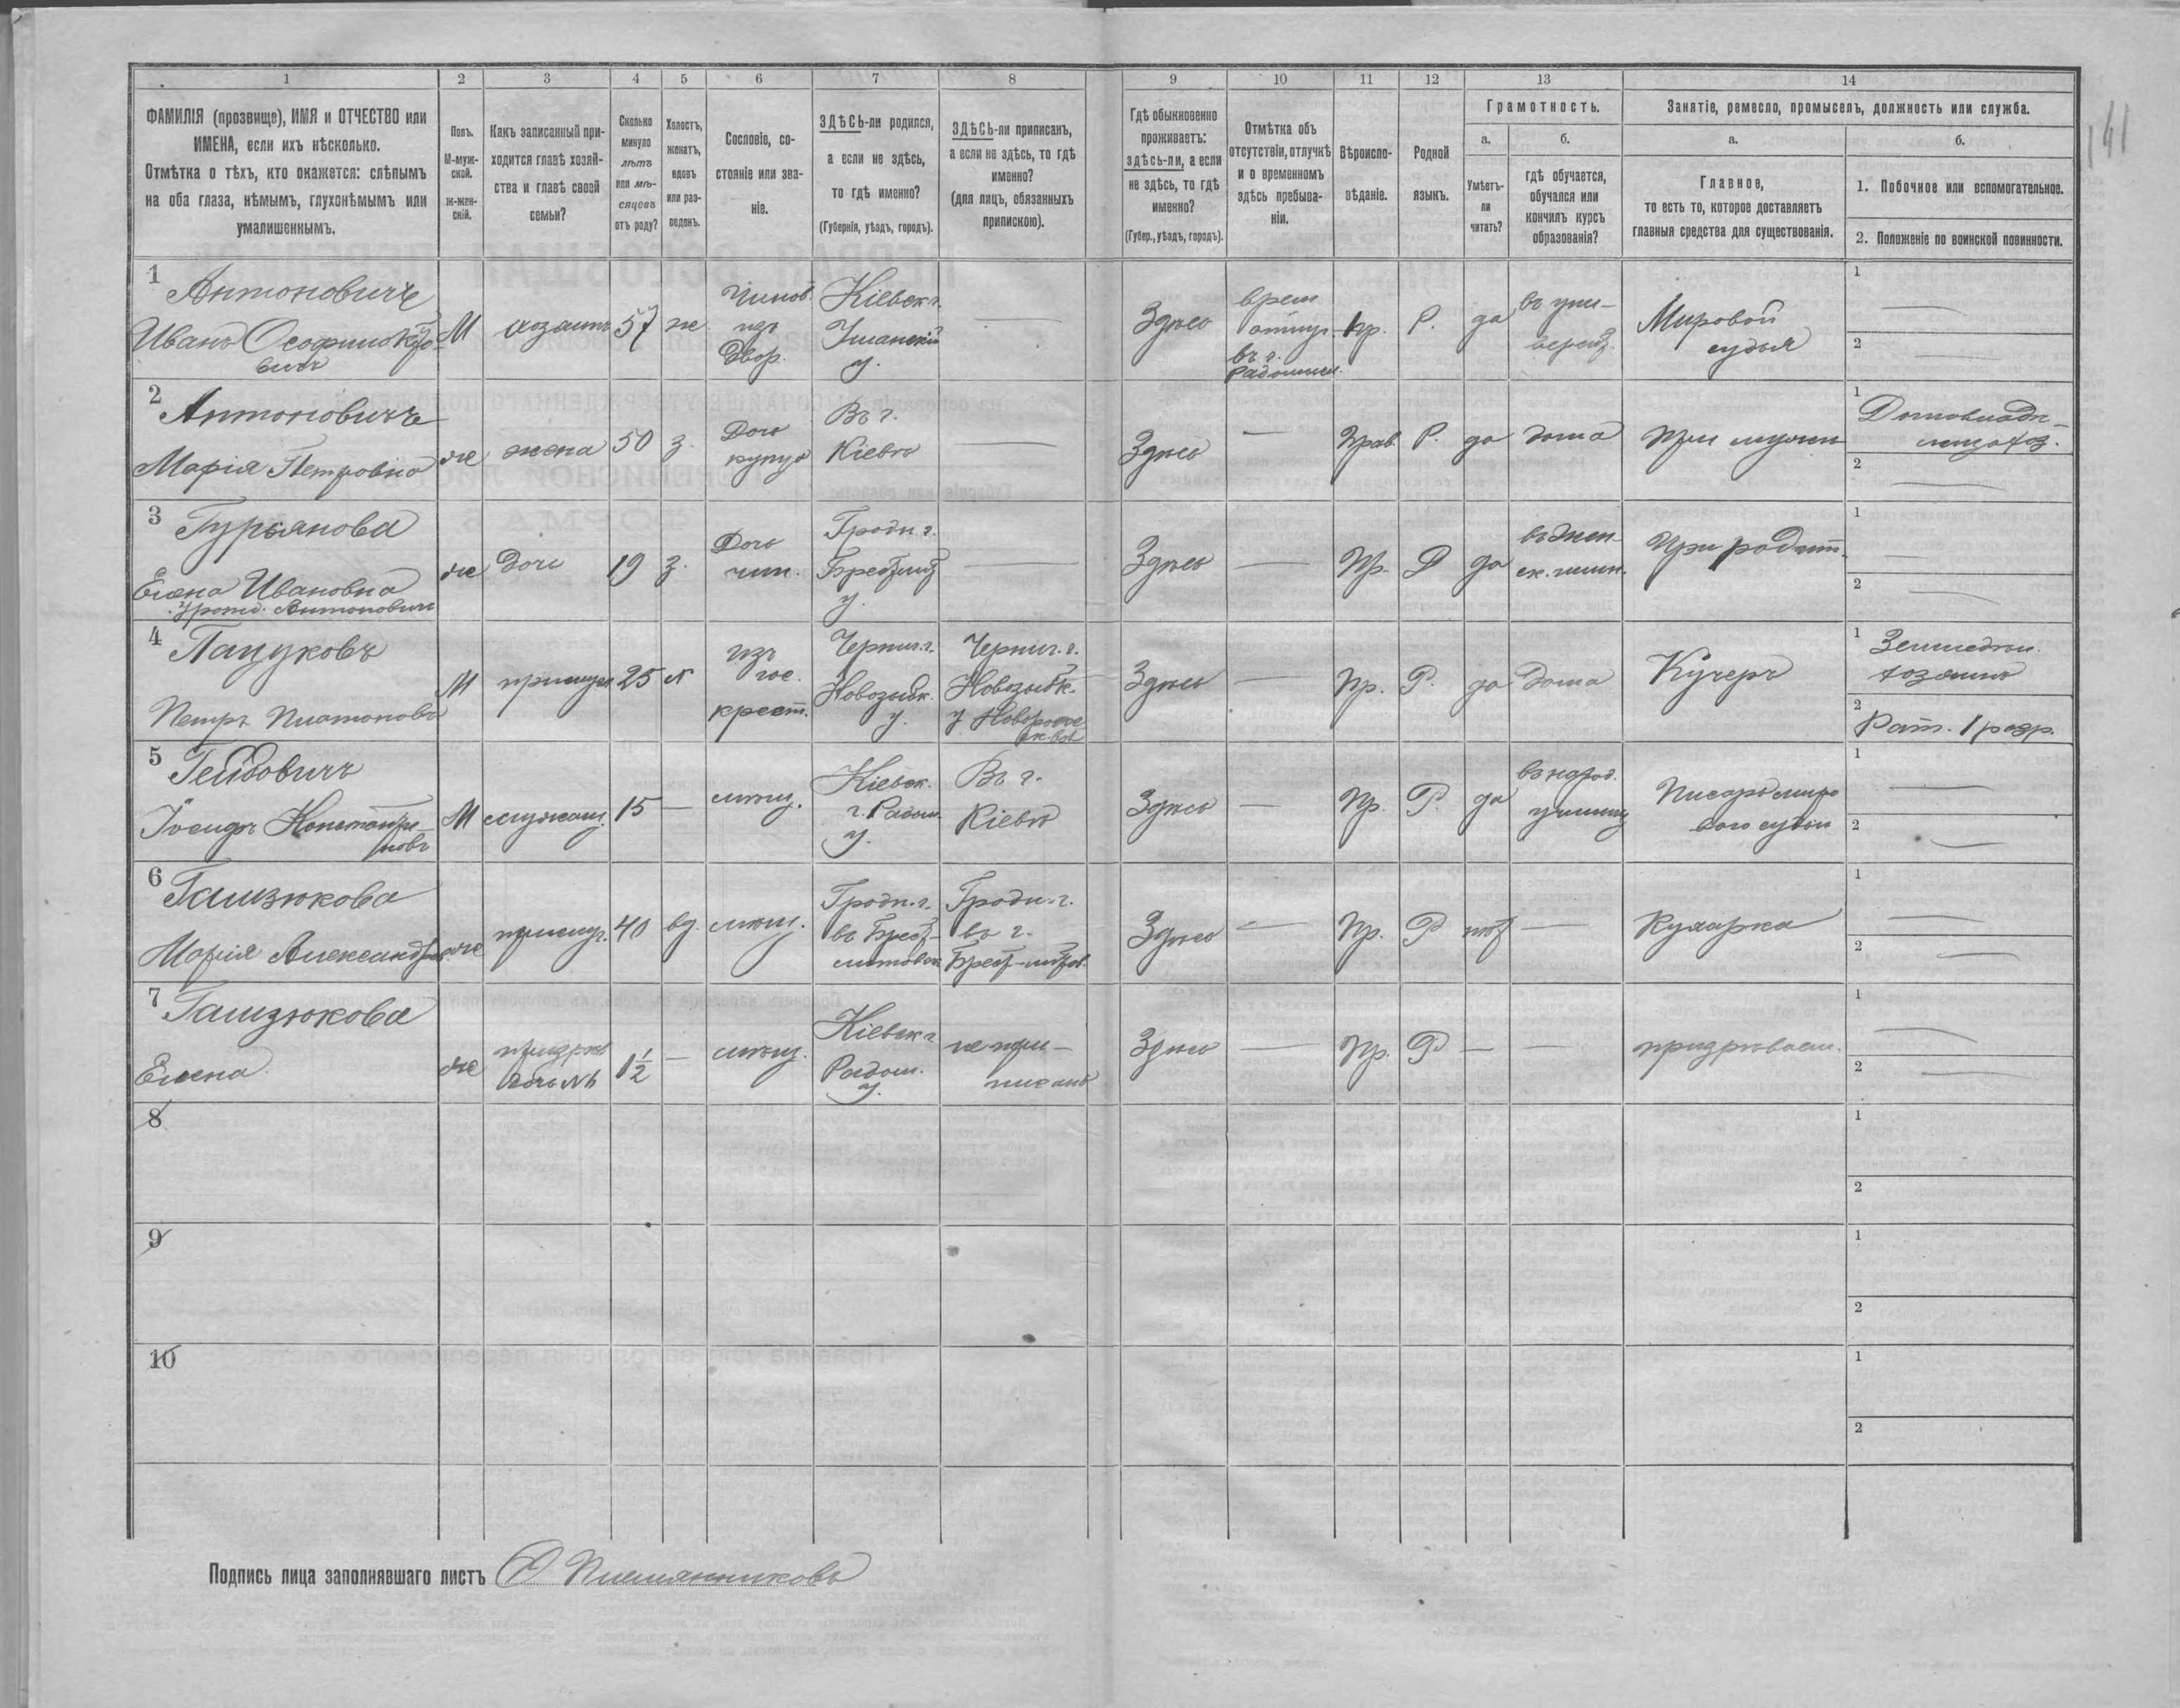 141
1 2 3 4 5 6 7 8 9 10 11 12 13 14
ФАМИЛІЯ (прозвище), ИМЯ и ОТЧЕСТВО или
ИМЕНА, если ихъ нѣсколько.
Отмѣтка о тѣхъ, кто окажется: слѣпымъ
на оба глаза, нѣмымъ, глухонѣмымъ или
умалишеннымъ.
Полъ.
М-муж-
ской.
Ж-жен-
скій.
Какъ записанный при-
ходится главѣ хозяй-
ства и главѣ своей
семьи?
Сколько
минуло
лѣтъ
или мѣ-
сяцевъ
отъ роду?
Холостъ,
женатъ,
вдовъ
или раз-
веденъ.
Сословіе, со-
стояніе или зва-
ніе.
ЗДѢСЬ-ли родился,
а если не здѣсь,
то гдѣ именно?
(Губернія, уѣздъ, городъ).
ЗДѢСЬ-ли приписанъ,
а если не здѣсь, то гдѣ
именно?
(для лицъ, обязанныхъ
припискою).
Гдѣ обыкновенно
проживаетъ:
здѣсь-ли, а если
не здѣсь, то гдѣ
именно?
(Губер., уѣздъ, городъ).
Отмѣтка объ
отсутствіи, отлучкѣ
и о временномъ
здѣсь пребыва-
ніи.
Вѣроиспо-
вѣданіе.
Родной
языкъ.
Грамотность.
а.
Умѣетъ-
ли
читать?
б.
гдѣ обучается,
обучался или
кончилъ курсъ
образованія?
Занятіе, ремесло, промыселъ, должность или служба.
а.
Главное,
то есть то, которое доставляетъ
главныя средства для существованія.
б.
1. Побочное или вспомогательное.
2. Положеніе по воинской повинности.
1
Антоновичъ
Иванъ
М
хозяинъ
57
же.
Чинов.
изъ
двор.
Кіевск. г.
Уманскій
у.
Здѣсь
врем
отлуч.
въ г.
Радомысл.
Пр.
Р.
да
въ уни-
версит.
Мировой
судья
1
2
2
Антоновичъ
Марія Петровна
же
жена
50
з.
Дочь
купца
Въ г.
Кіевѣ
Здѣсь
Прав.
Р.
да
дома
При мужѣ
1
2
3
Гурьянова
Елена Ивановна
урожд. Антоновичъ
же
дочь
19
з.
Дочь
чин.
Гродн. г.
у.
Здѣсь
Пр.
Р
да
При родит.
1
2
4
Пацуковъ
Петръ Платоновъ
М
25
изъ
крест.
Черниг. г.
Новозыбк.
у.
Черниг. г.
Новозыбк.
у.
Здѣсь
Пр.
Р.
да
дома
Кучеръ
1
хозяинъ
2
Рат. 1 разр.
5
М
служащ.
15
мѣщ.
Кіевск.
г. Радом.
у.
Въ г.
Кіевѣ
Здѣсь
Пр.
Р.
да
въ народ.
училищ
Писарь миро
вого судьи
1
2
6
Марія Александров.
же
прислуг.
40
вд.
мѣщ.
Гродн. г.
въ Брест-
литовск
Гродн. г.
въ г.
Брест-литов.
Здѣсь
Пр.
Р
нѣт
Кухарка
1
2
7
Елена
же
дочь №6
1 1/2
мѣщ.
Кіевск. г.
Радом.
у.
не при-
писана
Здѣсь
Пр.
Р
призрѣваем.
1
2
8
1
2
9
1
2
10
1
2
Подпись лица заполнявшаго листъ
Племянниковъ